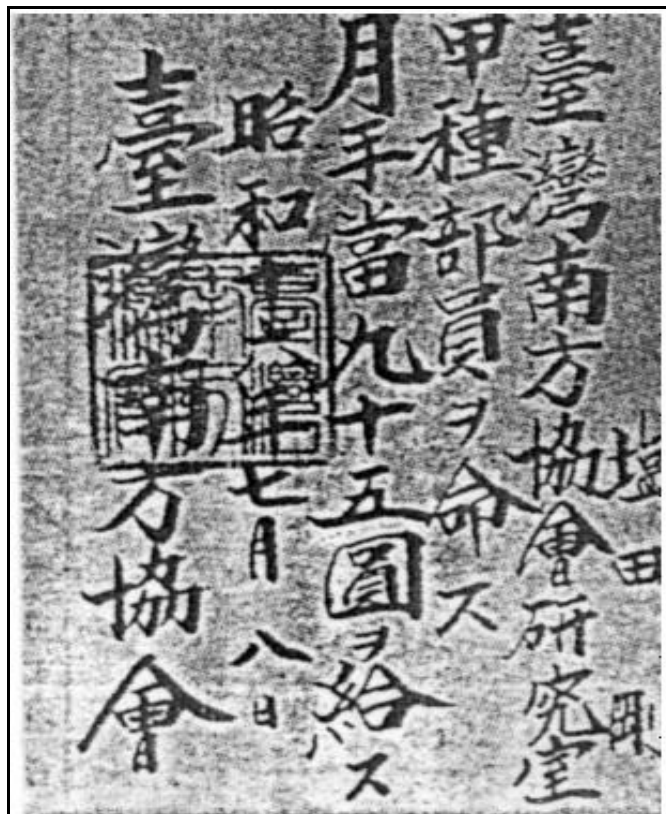 塩田
臺灣南方協會研究室
甲種部員ヲ命ス
月手當九十五圓ヲ給ス
昭和十七年七月八日
臺灣南方協會